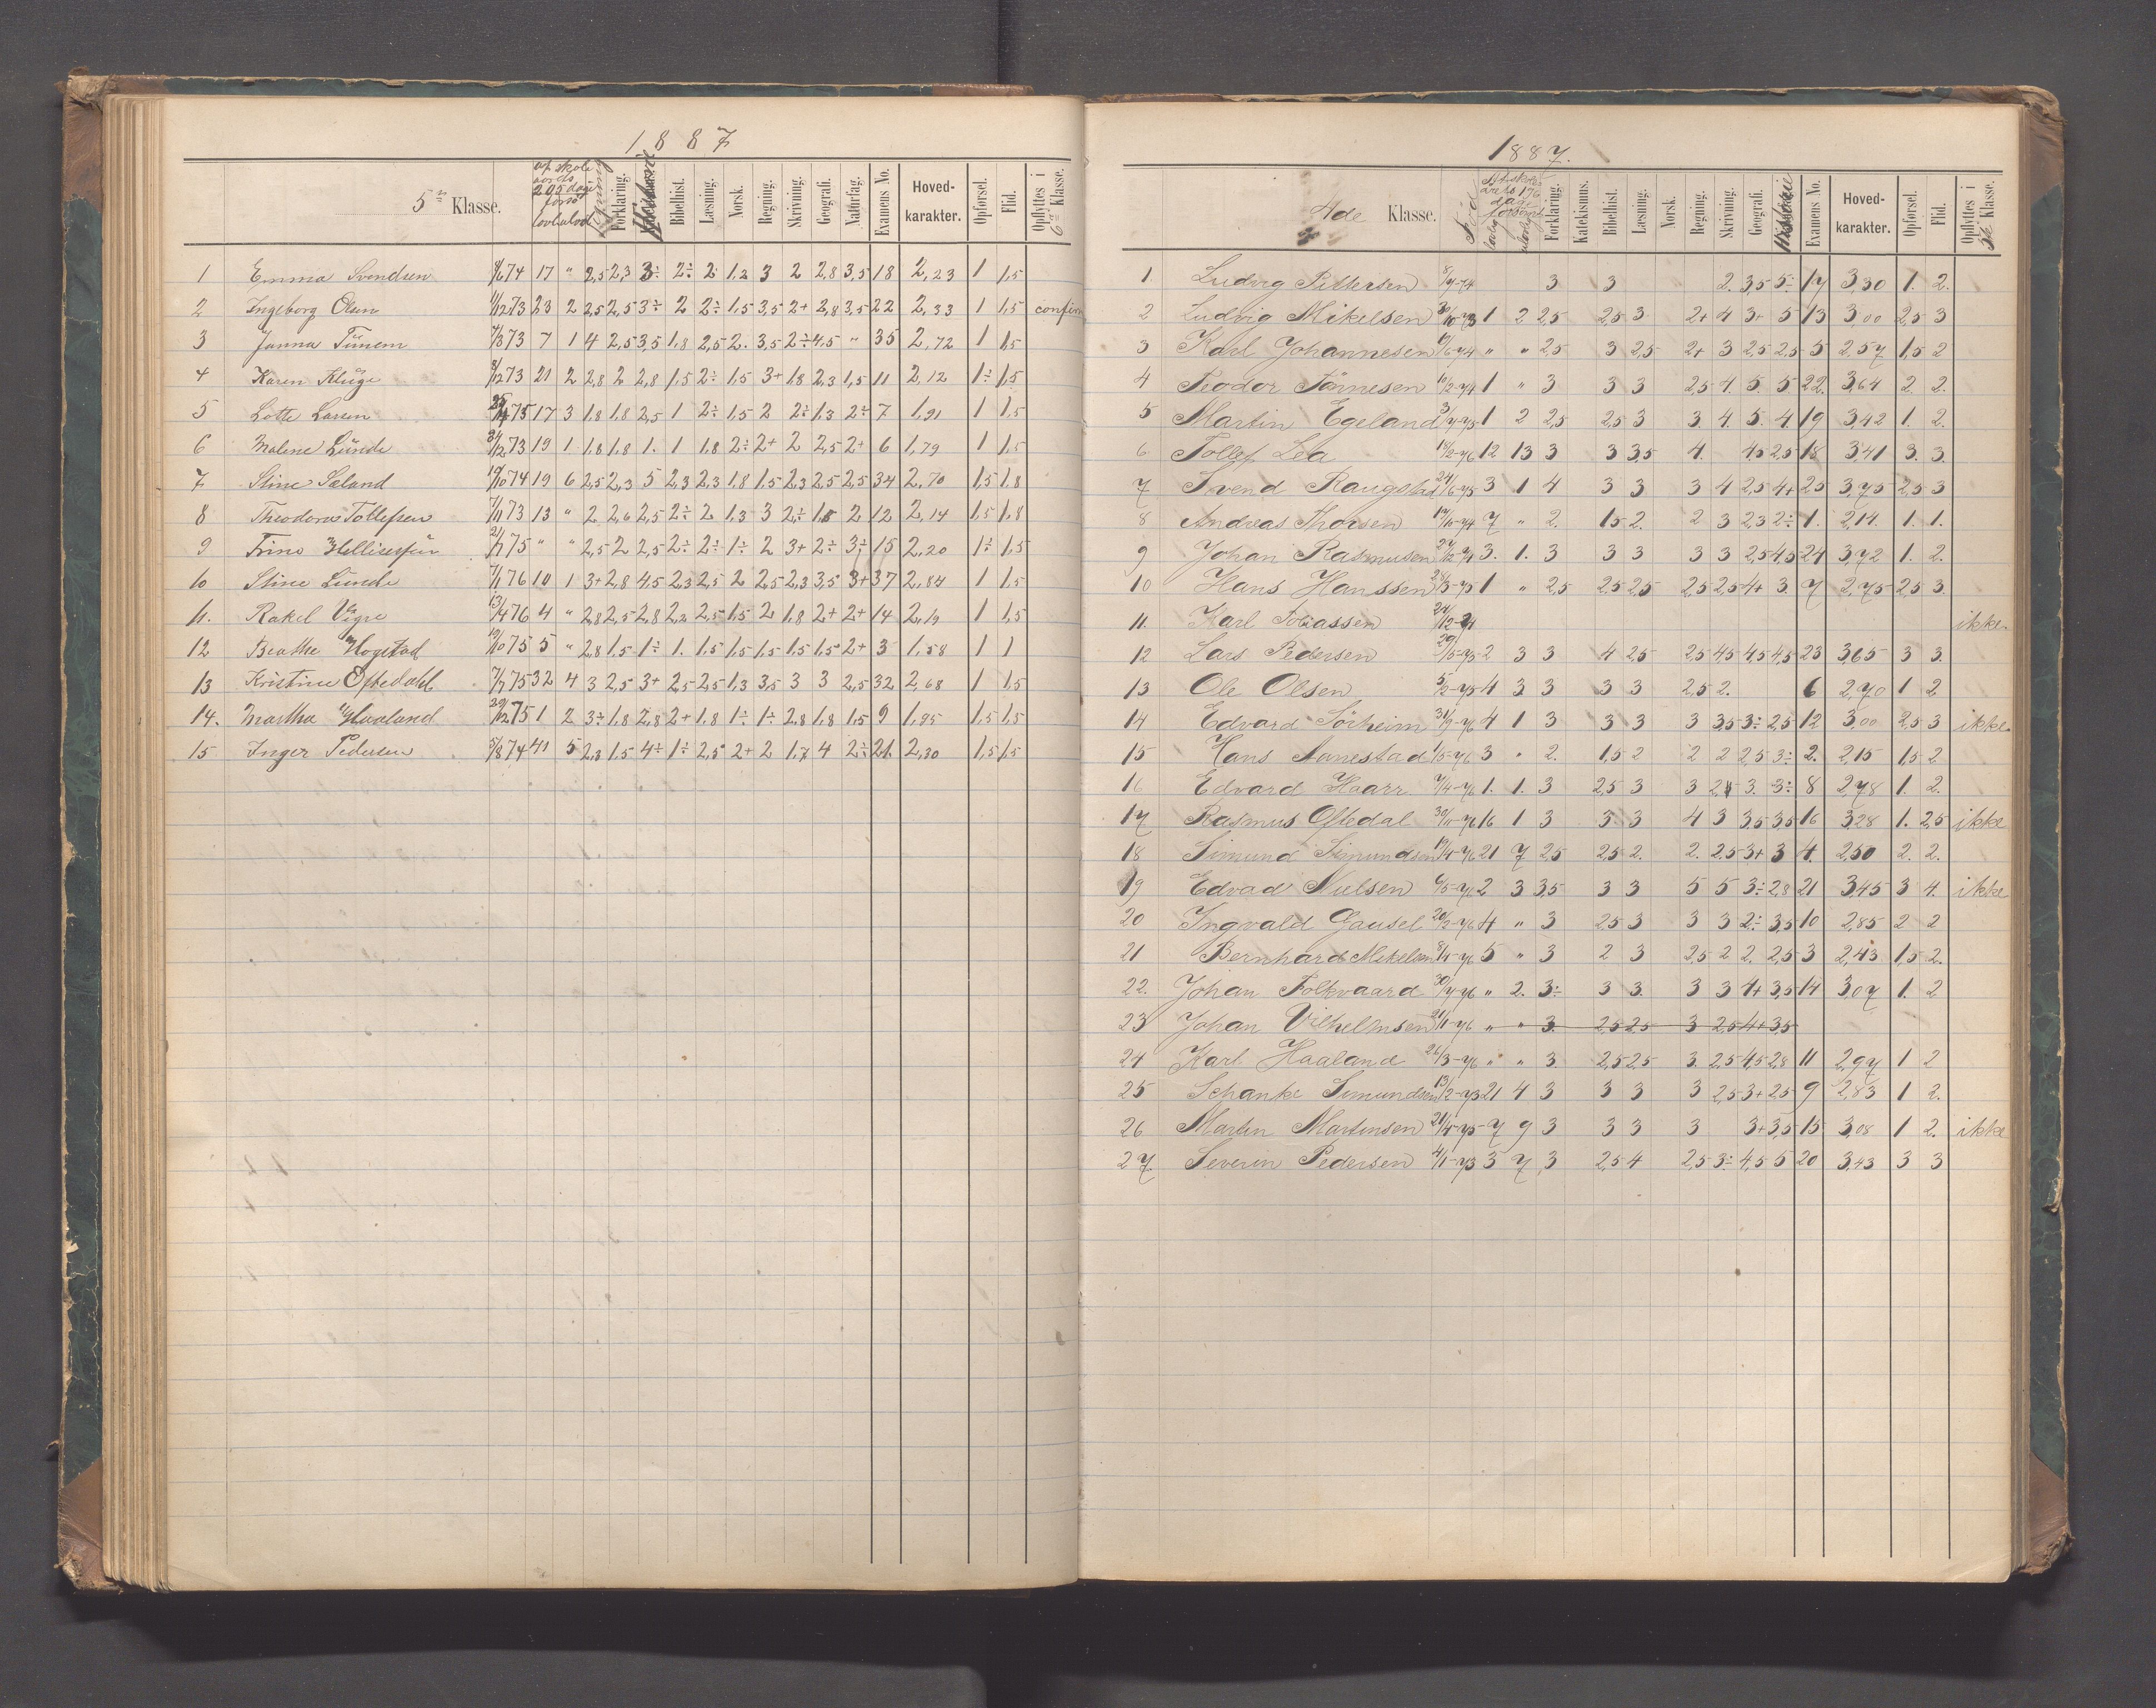 1887
5te Klasse.
af skole
205 dage
Forklaring.
Bibelhist.
Læsning.
Norsk.
Regning.
Skrivning.
Geografi.
Naturfag.
Examens No.
Hoved-karakter.
Opførsel.
Flid.
Opflyttes i 6te Klasse.
1 Emma Svendsen 74 17 " 2,5 2,3 3÷ 2÷ 2 1,2 3 2 2,8 3,5 18 2,23 1 1,5
2 Ingeborg Olsen 73 23 2 2,5 2,5 3÷ 2 2÷ 1,5 3,5 2+ 2,8 3,5 22 2,33 1 1,5 confirm
3 Janna 73 7 1 4 2,5 3,5 1,8 2,5 2. 3,5 2÷ 4,5 " 35 2,72 1 1,5
4 Karen Kluge 8/12 73 21 2 2,8 2 2,8 1,5 2÷ 1,5 3+ 1,8 2,3 1,5 11 2,12 1÷ 1,5
5 Lotte Larsen 75 17 3 1,8 1,8 2,5 1 2÷ 1,5 2 2÷ 1,3 2÷ 7 1,91 1 1,5
6 Malene Lunde 73 19 1 1,8 1,8 1. 1 1,8 2÷ 2+ 2 2,5 2+ 6 1,79 1 1,5
7 Stine Sæland 19/10 74 19 6 2,5 2,3 5 2,3 2,3 1,8 1,5 2,3 2,5 2,5 34 2,70 1,5 1,8
8 Theodora Tollefsen 7/11 73 13 " 2 2,6 2,5 2÷ 2 1,3 3 2÷ 1,8 2 12 2,14 1,5 1,8
9 Trine 21/7 75 " " 2,5 2 2,5 2÷ 2÷ 1÷ 2 3+ 2÷ 3÷ 15 2,20 1÷ 1,5
10 Stine Lunde 7/1 76 10 1 3+ 2,8 4,5 2,3 2,5 2 2,5 2,3 3,5 3+ 37 2,84 1 1,5
11. Rakel Vigre 13/4 76 4 " 2,8 2,5 2,8 2,2 2,5 1,5 2 1,8 2+ 2+ 14 2,19 1 1,5
12 Beathe Hogstad 19/10 75 5 " 2,8 1,5 1÷ 1. 1,5 1,5 1,5 1,5 1,5 2+ 3 1,58 1 1
13 Kristine Oftedahl 7/7 75 32 4 3 2,5 3+ 2,5 2,5 1,3 3,5 3 3 2,5 32 2,68 1 1,5
14. Martha Haaland 29/12 75 1 2 3÷ 1,8 2,8 2+ 1,8 1÷ 1÷ 2,8 1,8 1,5 9 1,95 1,5 1,5
15 Inger Pedersen 5/8 74 41 5 2,3 1,5 4÷ 1÷ 2,5 2+ 2 1,7 4 2÷ 21. 2,30 1,5 1,5
1887.
4de Klasse.
Forklaring.
Katekismus.
Bibelhist.
Læsning.
Norsk.
Regning.
Skrivning.
Geografi.
Historie
Examens No.
Hoved-karakter.
Opførsel.
Flid.
Opflyttes i Klasse.
1. Ludvig Pettersen 8/7-74 3 3 2. 3,5 5÷ 17 3,30 1. 2.
2 Ludvig Mikelsen 30/10-73 1 2 2,5 2,5 3 2+ 4 3+ 5 13 3,00 2,5 3
3 Karl Johannesen 6/6-74 " " 2,5 3 2,5 2+ 3 2,5 2,5 5 2,57 1,5 2
4 Teodor Tønnesen 10/2-74 1 " 3 3 3 2,5 4. 5. 5. 22. 3,64 2. 2.
5 Martin Egeland 75 1 2 2,5 2,5 3 3. 4. 5. 4. 19 3,42 1. 2.
6 Tollef Lea 18/2-76 12 13 3 3 3,5 4. 4,5 2,5 18 3,41 3. 3.
7 Svend Raugstad 24/6-75 3 1 4 3 3 3 4 2,5 4+ 25 3,75 2,5 3
8 Andreas Thorsen 19/10-74 7 " 2. 1,5 2. 2 3 2,3 2÷ 1. 2,14. 1. 1.
9 Johan Rasmusen 27/12-74 3. 1. 3 3 3 3 3 2,5 4,5 24 3,72 1. 2.
10 Hans Hanssen 75 1 " 2,5 2,5 2,5 2,5 2,5 4+ 3. 7 2,75 2,5 3.
11. Karl Tobiassen 24/12-74 ikke.
12 Lars Pedersen 20/5-73 2 3 3 4 2,5 2,5 4,5 4,5 4,5 23 3,65 3 3.
13 Ole Olsen 5/2-75 4 3 3 3 3 2,5 2. 6 2,70 1 2
14 Edvard Sørheim 31/9-76 4 1 3 3 3 3 3,5 3÷ 2,5 12 3,00 2,5 3 ikke.
15 Hans Aanestad 1/5-76 3 " 2. 1,5 2 2 2 2,5 3÷ 2. 2,15 1,5 2
16 Edvard Haarr 7/4-76 1. 1. 3 2,5 3 3 3. 3÷ 8 2,78 1. 2.
17 Rasmus Oftedal 30/11-76 16 1 3 3. 3 4 3 3,5 3,5 16 3,28 1. 2,5 ikke
18 Simund Simundsen 19/4-76 21 7 2,5 2,5 2. 2. 2,5 3+ 3 4. 2,50 2. 2.
19 Edvad Nielsen 6/5-76 2 3 3,5 3 3 5 5 3÷ 2,8 21 3,45 3 4. ikke
20 Ingvald Gausel 20/2-76 4 " 3 2,5 3 3 3 2÷ 3,5 10 2,85 2 2
21 Bernhard Mikelsen 76 5 " 3 2 3 2,5 2 2. 2,5 3 2,43 1,5 2.
22. Johan Folkvaard 30/7-76 " 2. 3÷ 3 3. 3 3 4+ 3,5 14 3,07 1. 2
23 Johan Vilhelmsen 21/1-76 " " 3. 2,5 2,5 3 2,5 4+ 3,5
24 Karl Haaland 26/3-76 " " 3. 2,5 2,5 3. 2,5 4,5 2,8 11 2,97 1 2
25 Schanke Simundsen 13/2-73 21 4 3 3 3 3 2,5 3+ 2,5 9 2,83 1 2.
26 Martin Martinsen 21/4-75 7 9 3 3 3 3 3+ 3,5 15 3,08 1 2. ikke
27 Severin Pedersen 4/1-73 3 7 3 2,5 4 2,5 3÷ 4,5 5 20 3,43 3 3